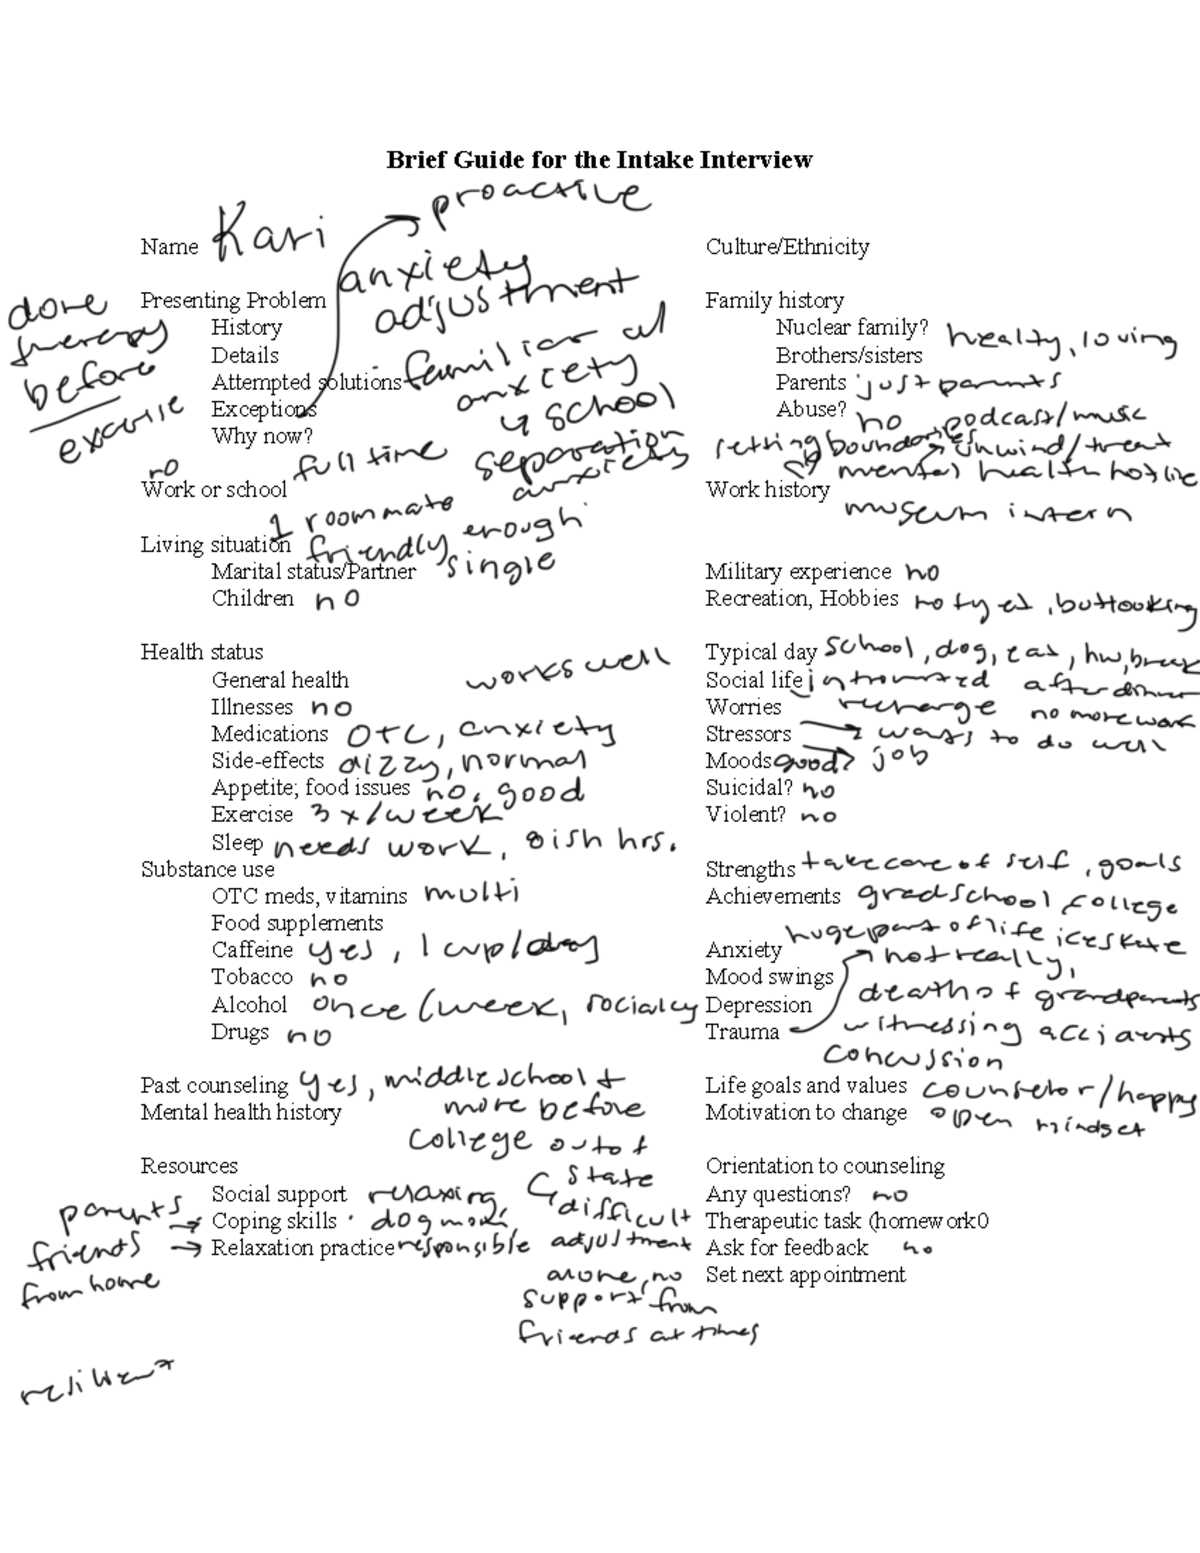 Brief Guide for the Intake Interview
proactive
Name Kari
Culture/Ethnicity
anxiety
adjustment
done
therapy
before
exercise
Presenting Problem
History
Details
Attempted solutions familiar w/
anxiety
↳ school
Exceptions
Why now?
separation
anxiety
Family history
Nuclear family? healthy, loving
Brothers/sisters
Parents just parents
Abuse? no
podcast/music
setting boundaries
unwind/treat
mental health hotline
no
full time
Work or school
Work history
museum intern
1 roommate
Living situation friendly enough
Marital status/Partner single
Children no
Military experience no
Recreation, Hobbies no tyet, but looking
Health status
General health works well
Illnesses no
Medications OTC, anxiety
Side-effects dizzy, normal
Appetite; food issues no, good
Exercise 3x/week
Sleep needs work, 8ish hrs.
Typical day school, dog, eat, hw, break
after dinner
no more work
Social life introverted
recharge
Worries
Stressors → wants to do well
→ job
Moods good
Suicidal? no
Violent? no
Substance use
OTC meds, vitamins multi
Food supplements
Caffeine yes, 1 cup/day
Tobacco no
Alcohol once/week, socially
Drugs no
Strengths take care of self, goals
Achievements grad school, college
ice skate
Anxiety huge part of life
Mood swings not really,
Depression
Trauma
deaths of grandparents
witnessing accidents
concussion
Past counseling yes, middle school +
more before
college out of
state
Mental health history
↳ difficult
adjustment
alone, no
support from
friends at times
Life goals and values counselor/happy
Motivation to change open mindset
Resources
Social support relaxing,
Coping skills dog mom,
Relaxation practice responsible
parents →
friends →
from home
resilient
Orientation to counseling
Any questions? no
Therapeutic task (homework0
Ask for feedback no
Set next appointment